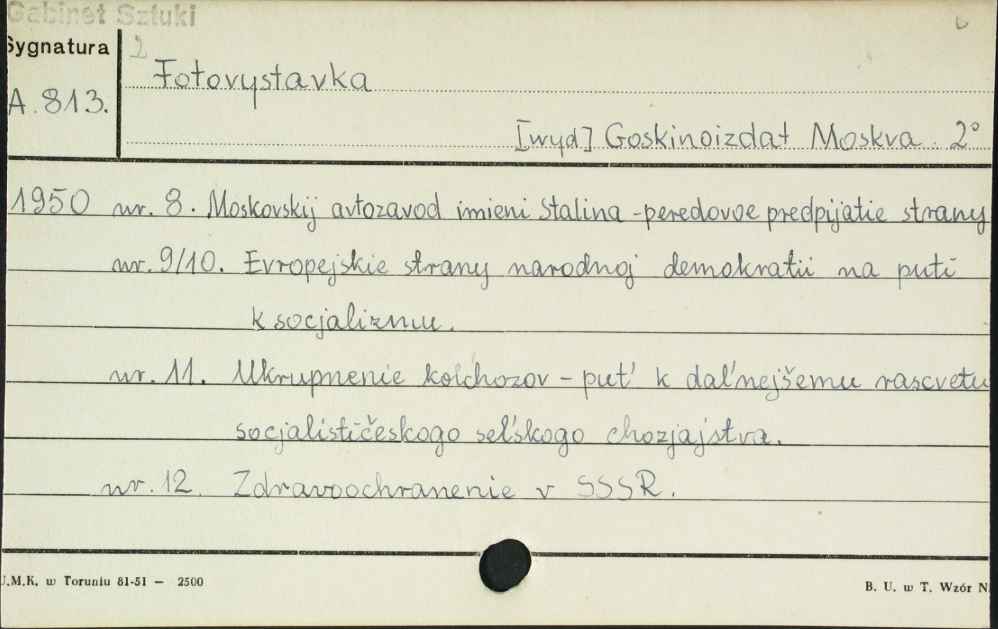 Gabinet Sztuki
Sygnatura 2
Fotovystavka
A. 813.
[wyd] Goskinoizdat Moskva. 2°
1950 nr. 8. Moskovskij avtozavod imieni Stalina - peredovoe predpijatie strany
nr. 9/10. Evropejskie strany narodnoj demokratii na puti
k socjalizmu.
nr. 11. Ukrupnenie kolchozov - put' k dal'nejšemu rascvetu
socjalističeskogo sel'skogo chozjajstva.
nr. 12. Zdravoochranenie v SSSR.
U.M.K. w Toruniu 81-51 — 2500
B. U. w T. Wzór N